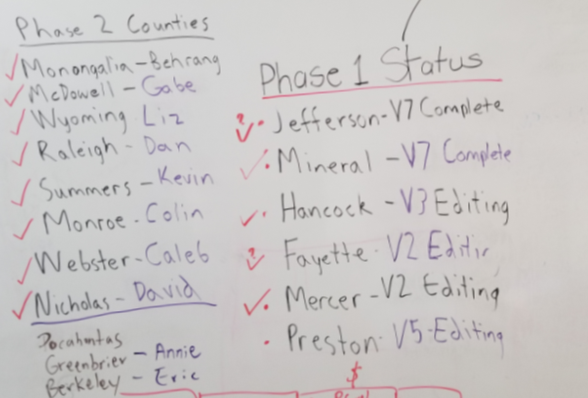 Phase 2 Counties
✓ Monongalia - Behrang
✓ McDowell - Gabe
✓ Wyoming Liz
✓ Raleigh - Dan
✓ Summers - Kevin
✓ Monroe - Colin
✓ Webster - Caleb
✓ Nicholas - David
Pocahontas
Greenbrier - Annie
Berkeley - Eric
Phase 1 Status
?✓ • Jefferson - V7 Complete
✓ • Mineral - V7 Complete
✓ • Hancock - V3 Editing
?✓ Fayette - V2
✓ • Mercer - V2 Editing
• Preston - V5 - Editing
$